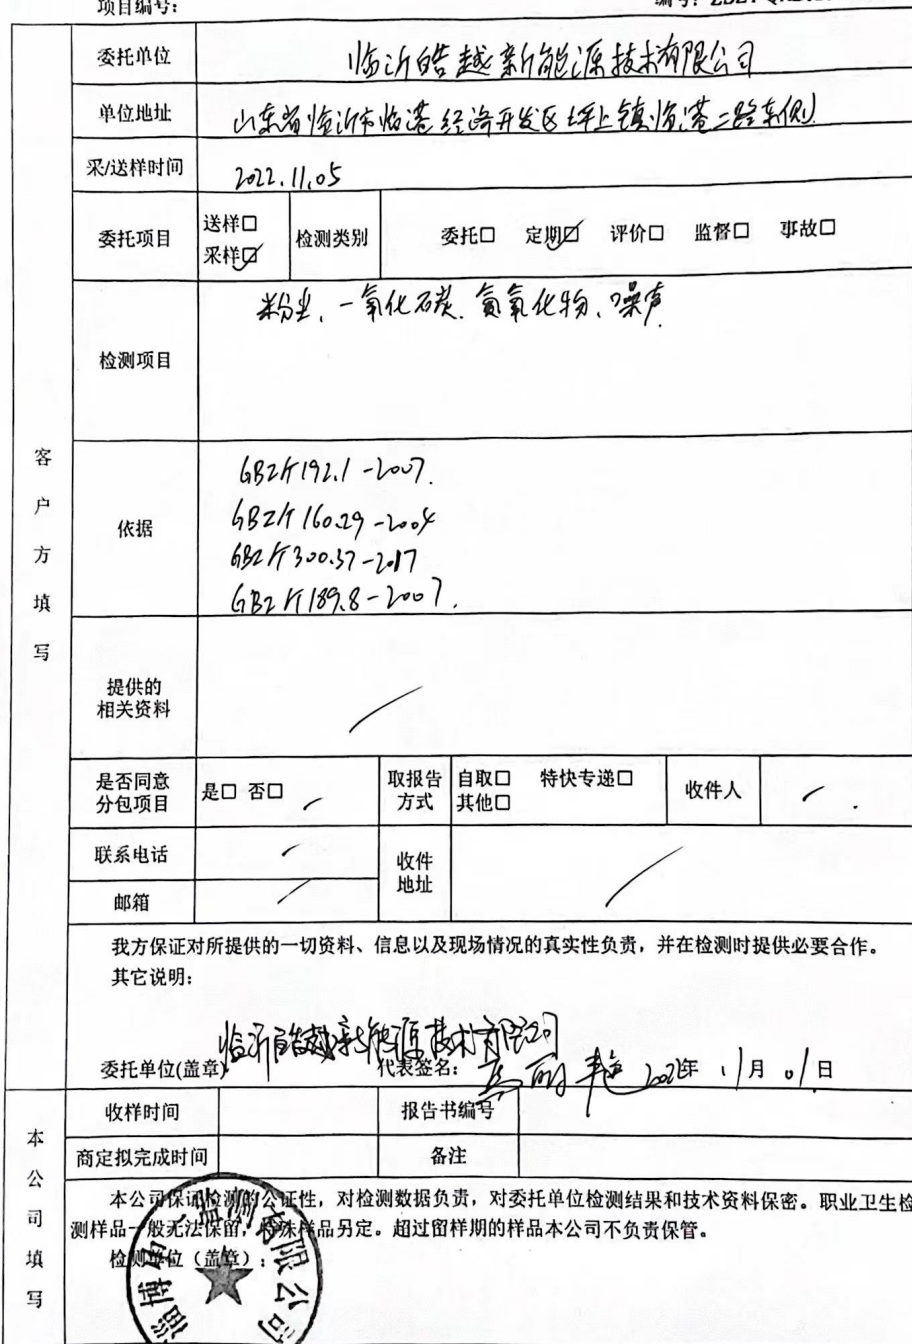 项目编号：
委托单位 临沂皓越新能源技术有限公司
单位地址 山东省临沂市临港经济开发区坪上镇临港二路东侧
采/送样时间 2022.11.05
委托项目 送样□ 采样☑ 检测类别 委托□ 定期☑ 评价□ 监督□ 事故□
检测项目 粉尘、一氧化碳、氮氧化物、噪声
客户方填写
依据
GBZ/T192.1-2007.
GBZ/T160.29-2004
GBZ/T300.37-2017
GBZ/T189.8-2007.
提供的相关资料 /
是否同意分包项目 是□ 否□ / 取报告方式 自取□ 特快专递□ 其他□ 收件人 /
联系电话 / 收件地址 /
邮箱 /
我方保证对所提供的一切资料、信息以及现场情况的真实性负责，并在检测时提供必要合作。
其它说明：
临沂皓越新能源技术有限公司
委托单位(盖章) 代表签名： 2022年 11月 01日
本公司填写
收样时间 报告书编号
商定拟完成时间 备注
本公司保证检测的公证性，对检测数据负责，对委托单位检测结果和技术资料保密。职业卫生检
测样品一般无法保留，特殊样品另定。超过留样期的样品本公司不负责保管。
检测单位（盖章）：